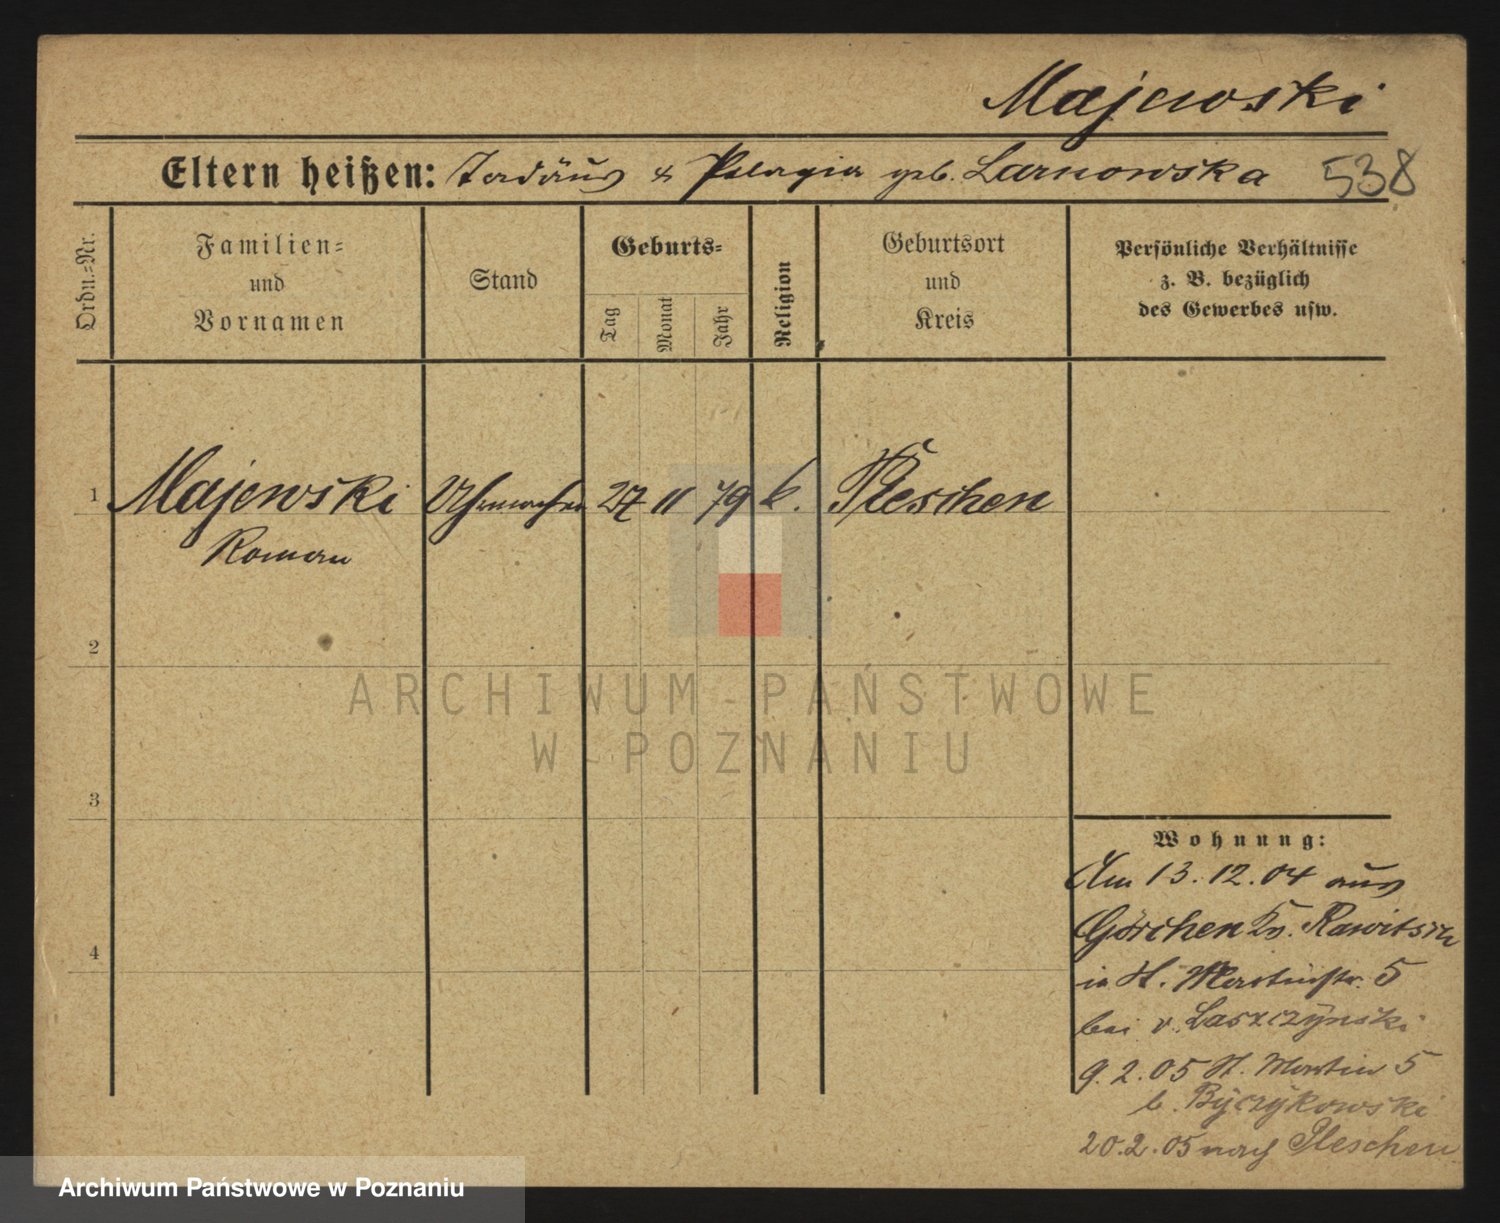 Majewski
Eltern heißen: Tadäus & Pelagia geb. Larnowska 538
Ordn.=Nr.
Familien=
und
Vornamen
Stand
Geburts=
Tag
Monat
Jahr
Religion
Geburtsort
und
Kreis
Persönliche Verhältnisse
z. B. bezüglich
des Gewerbes usw.
1 Majewski Uhrmacher 27 11 79 k. Pleschen
Roman
2
ARCHIWUM PAŃSTWOWE
W POZNANIU
3
Wohnung:
Am 13.12.04 aus
Görchen Kr. Rawitsch
in St. Martinstr. 5
bei v. Laszczynski
4
9.2.05 St. Martin 5
b. Byczykowski
20.2.05 nach Pleschen
Archiwum Państwowe w Poznaniu